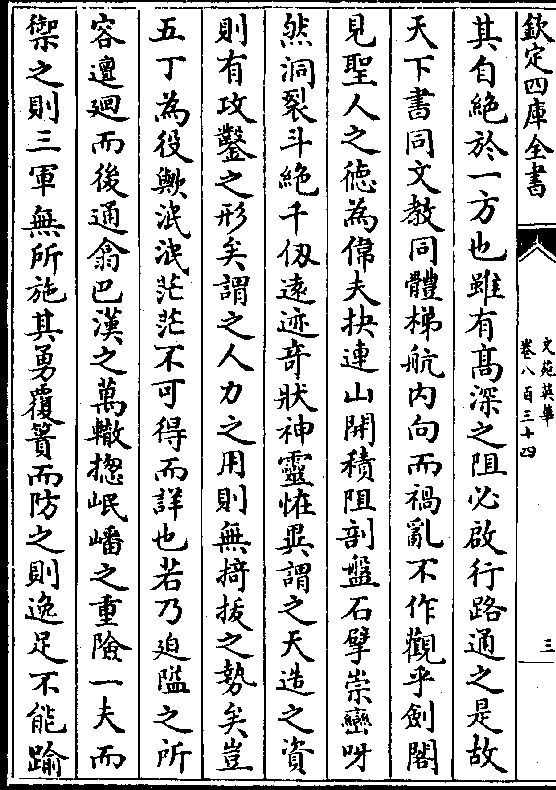 欽定四庫全書
文苑英華
卷八百三十四
三
其自絶於一方也雖有髙深之阻必啟行路通之是故
天下書同文教同體梯航内向而禍亂不作觀乎劍閣
見聖人之徳為偉夫抉連山開積阻剖盤石擘崇巒呀
然洞裂斗絶千仭逺迹竒狀神靈恠異謂之天造之資
則有攻鑿之形矣謂之人力之用則無掎拔之勢矣豈
五丁為役歟泯泯茫茫不可得而詳也若乃迫隘之所
容邅廻而後通翕巴漢之萬轍揔岷嶓之重險一夫而
禦之則三軍無所施其勇覆簣而防之則逸足不能踰